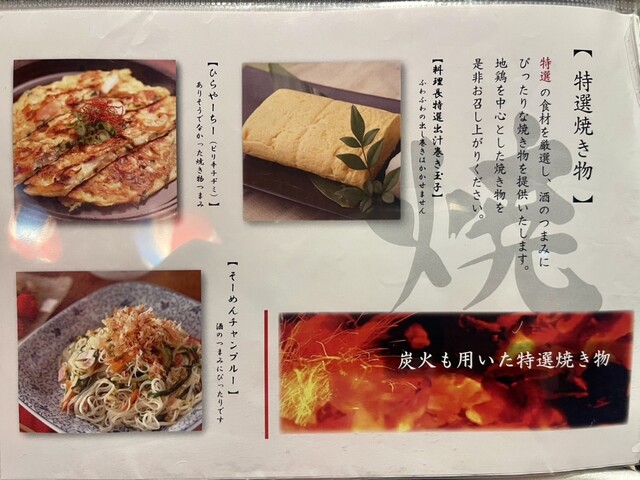 【特選焼き物】
特選の食材を厳選し、酒のつまみに
ぴったりな焼き物を提供いたします。
地鶏を中心とした焼き物を
是非お召し上がりください。
焼
【料理長特選出汁巻き玉子】
ふわふわの出し巻きはかかせません
【ひらやーちー（ピリ辛チヂミ）】
ありそうでなかった焼き物つまみ
【そーめんチャンプルー】
酒のつまみにぴったりです
炭火も用いた特選焼き物